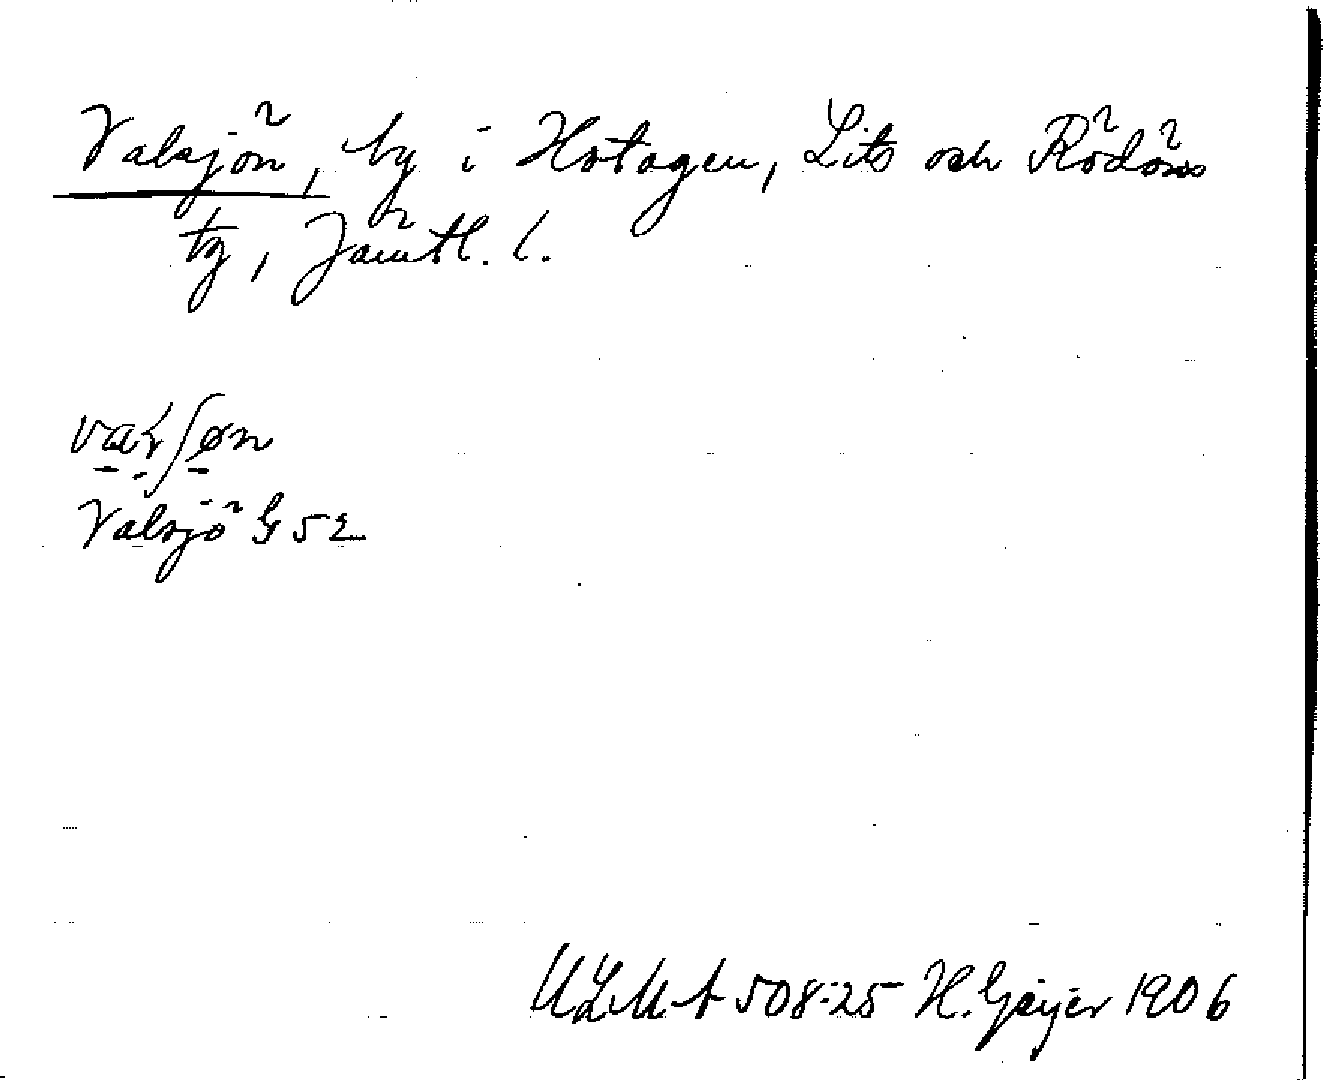 Valsjön, by i Hotagen, Lits och Rödöns
tg, Jämtl. l.
Valsjö G 52
ULMA 508:25 H. Geijer 1906